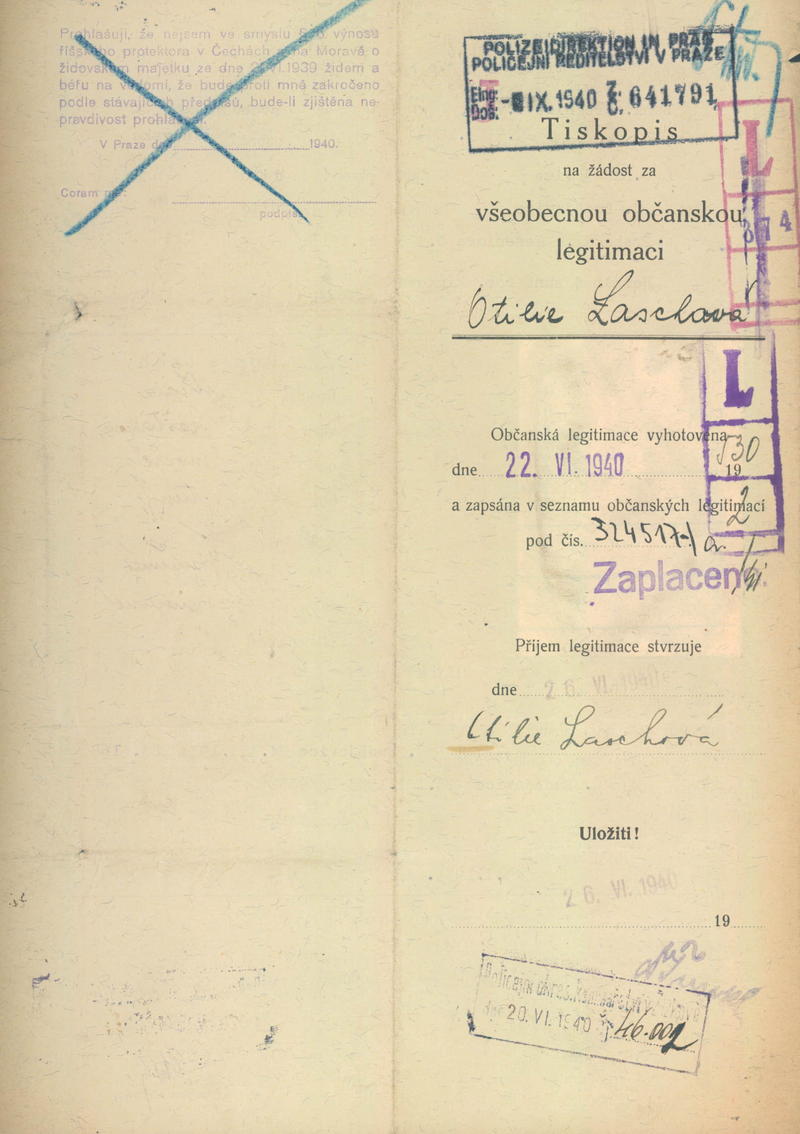 Prohlašuji, že nejsem ve smyslu výnosu
říšského protektora v Čechách a na Moravě o
židovském majetku ze dne 1939 židem a
běřu na vědomí, že bude proti mně zakročeno
podle stávajících předpisů, bude-li zjištěna ne-
pravdivost prohlášení.
V Praze dne 1940.
Coram me:
podpis
POLIZEIDIREKTION IN PRAG
POLICEJNÍ ŘEDITELSTVÍ V PRAZE
Eing.
Doš. IX. 1940 Č. 641791
Tiskopis
na žádost za
všeobecnou občanskou
legitimaci
Otilie Laschová
L
L
4
Občanská legitimace vyhotovena
dne 22. VI. 1940 19
530
a zapsána v seznamu občanských legitimací
2
pod čís. 324517
Zaplaceno
Příjem legitimace stvrzuje
dne 26. VI. 1940
Otilie Laschová
Uložiti!
26. VI. 1940
19
20. VI. 1940 46.002